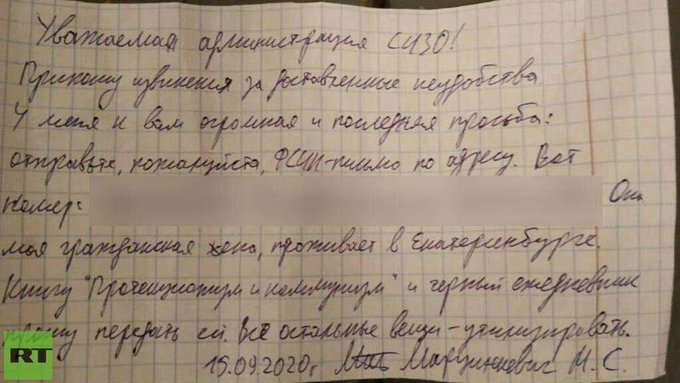 Уважаемая администрация СИЗО!
Приношу извинения за доставленные неудобства.
У меня к вам огромная и последняя просьба:
отправьте, пожалуйста, ФСИН-письмо по адресу. Вот
номер: Она
моя гражданская жена, проживает в Екатеринбурге.
Книгу "Протекционизм и коммунизм" и черный ежедневник
прошу передать ей. Всё остальные вещи - утилизировать.
15.09.2020г Марцинкевич М.С.
RT